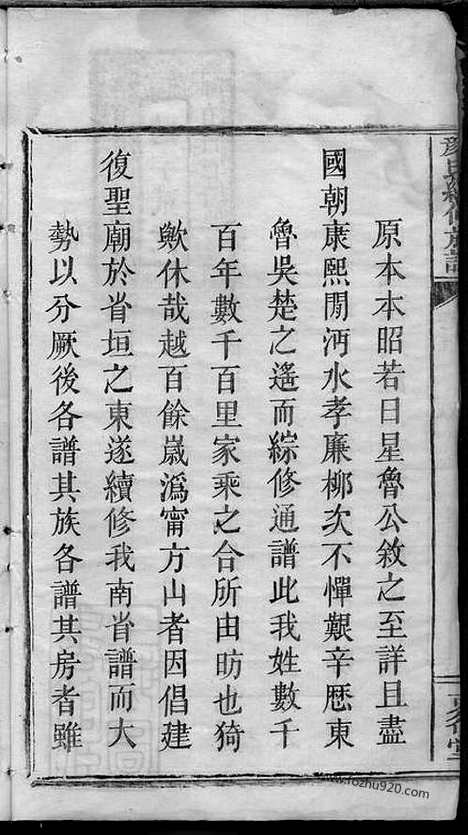 顏氏續修族譜
原本本昭若日星魯公敘之至詳且盡
國朝康熙閒沔水孝廉柳次不憚艱辛歷東
魯吳楚之遙而綜修通譜此我姓數千
百年數千百里家乘之合所由昉也猗
歟休哉越百餘歲溈甯方山者因倡建
復聖廟於省垣之東遂續修我南省譜而大
勢以分厥後各譜其族各譜其房者雖
www.fozhu920.com